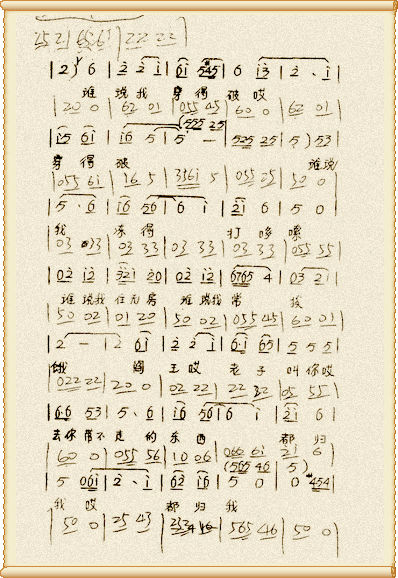 25 21 656i | 22 22 |
| 2 6 | 2 2 i | 6i 545 | 6 i3 | 2 . i |
谁说我 穿得破哎
| 20 0 | 62 01 | 055 45 | 60 0 | 62 01
(555 25
| i5 6i | i6 5 5 | 5 — | 525 25 | 5) 53 |
穿得破 谁说
| 055 6i | 16 5 | 3561 5 | 055 05 | 50 0
| 5 . 6 | i6 56 | 6 i | 2i 6 | 5 0 |
我 冻得 打哆嗦
| 03 033 | 03 33 | 03 33 | 03 33 | 055 55 |
| 02 i2 | 32i 20 | 02 i2 | 6765 4 | 03 2i |
谁说我住无房 谁说我常 挨
| 50 02 | 01 20 | 50 02 | 055 45 | 60 01 |
| 2 — | 2 6i | 2 2 i | 6·i 65 | 5 5 5 |
饿 阎王哎 老子叫你哎
| 022 22 | 20 0 | 02 22 | 22 32 | 05 55
| 66 53 | 5 . 6 | i6 56 | 6 i | 2i 6 |
去你带不走的东西 都归
| 60 0 | 055 56 | 10 06 | 066 6i | 2i 6 |
(565 46 | 5)
| 5 06i | 2 . i | 62 i6 | 5 0 | 0 #454 |
我哎 都归我
| 50 0 | 25 43 | 2534 | 565 46 | 50 0 |